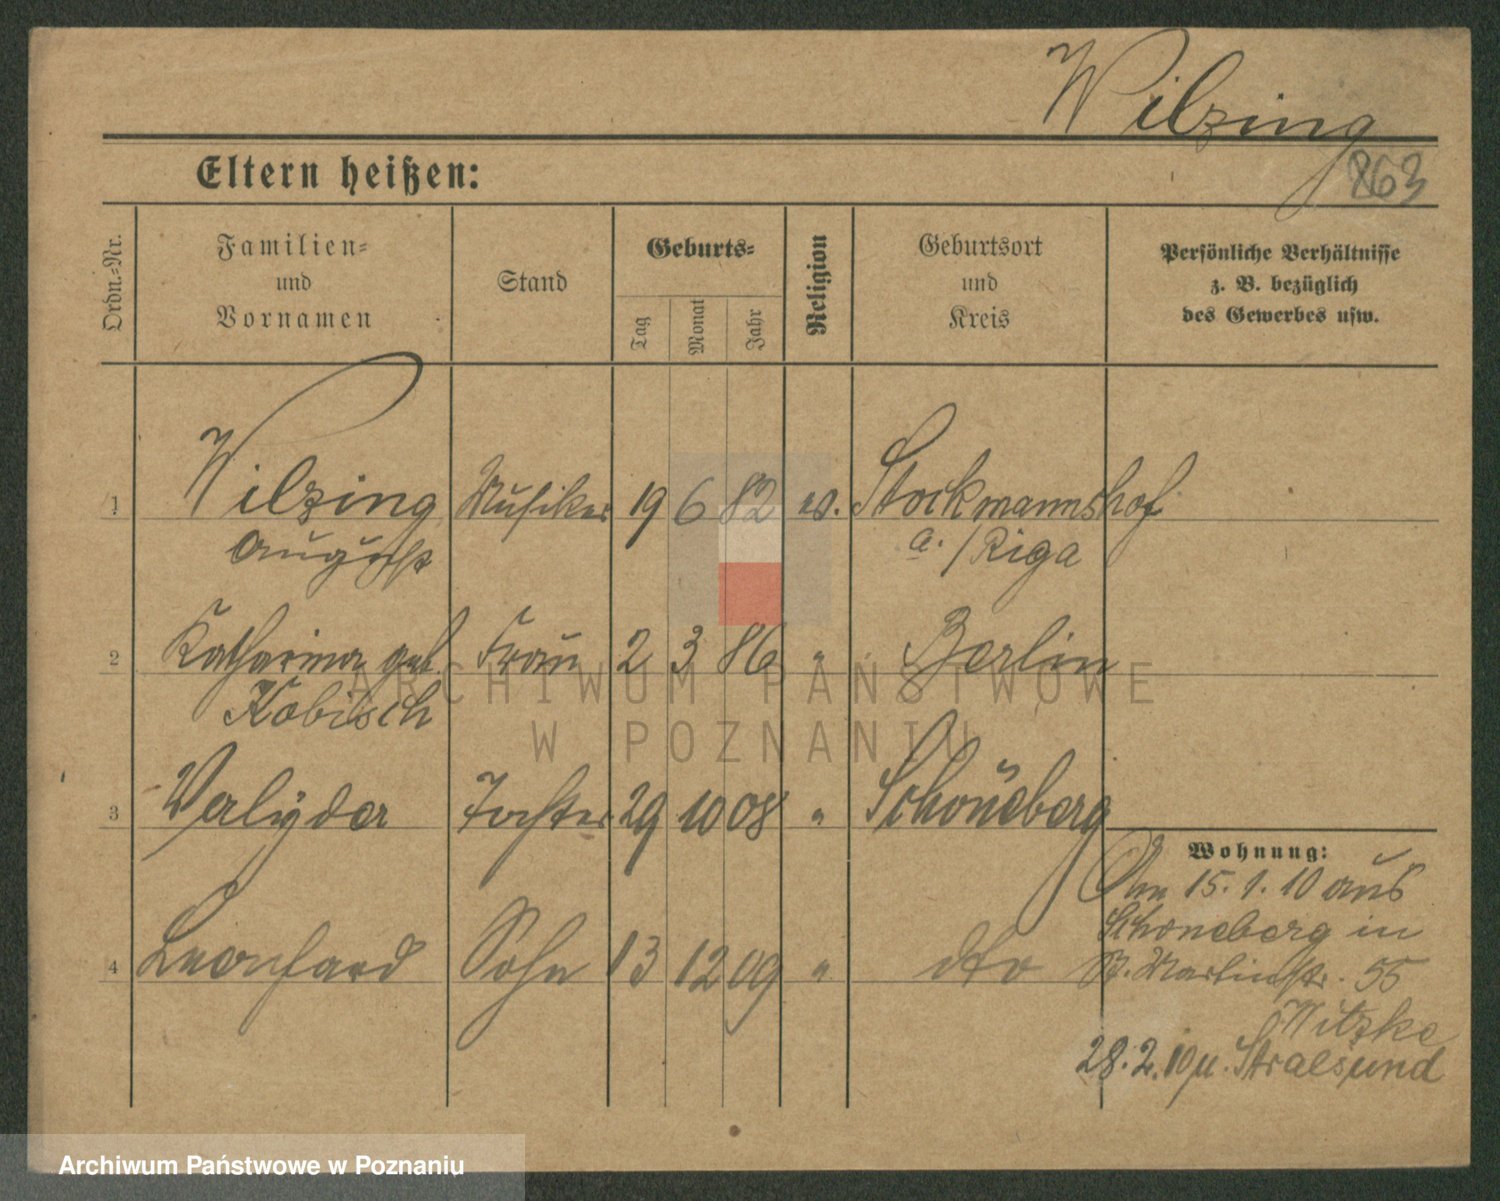 Wilzing
863
Eltern heißen:
Ordn.-Nr.
Familien-
und
Vornamen
Stand
Geburts-
Tag
Monat
Jahr
Religion
Geburtsort
und
Kreis
Persönliche Verhältnisse
z. B. bezüglich
des Gewerbes usw.
1 Wilzing Musiker 19 6 82 ev. Stockmannshof
August a./Riga
2 Katharina geb. Frau 2 3 86 " Berlin
Kobisch
3 Tochter 29 10 08 " Schöneberg
4 Leonhard Sohn 13 12 09 " dto
Wohnung:
Am 15. 1. 10 aus
Schöneberg in
St. Martinstr. 55
Witzke
28. 2. 10 n. Stralsund
ARCHIWUM PAŃSTWOWE
W POZNANIU
Archiwum Państwowe w Poznaniu